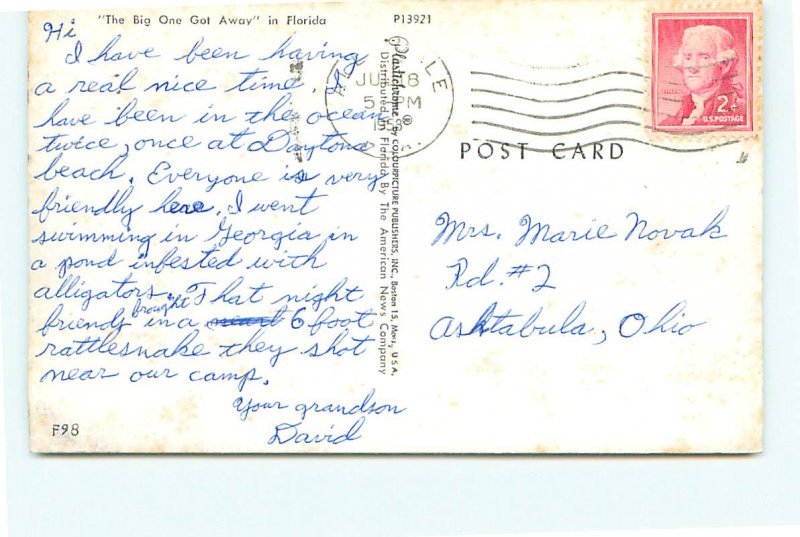 "The Big One Got Away" in Florida
P13921
Hi
I have been having
a real nice time. I
have been in the ocean
twice, once at Daytona
beach. Everyone is very
friendly here. I went
swimming in Georgia in
a pond infested with
alligators. That night
friends brought in a 6 foot
rattlesnake they shot
near our camp.
Your grandson
David
F98
Plastichrome ® By COLOURPICTURE PUBLISHERS, INC., Boston 15, Mass., U.S.A.
Distributed in Florida By The American News Company
5 PM
1958
POST CARD
2¢
U.S. POSTAGE
Mrs. Marie Novak
Rd. #2
Ashtabula, Ohio